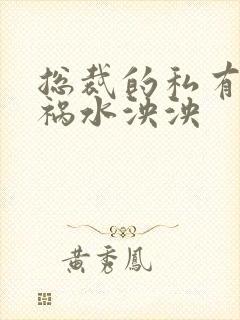 总裁的私有
祸水泱泱
黄秀凤